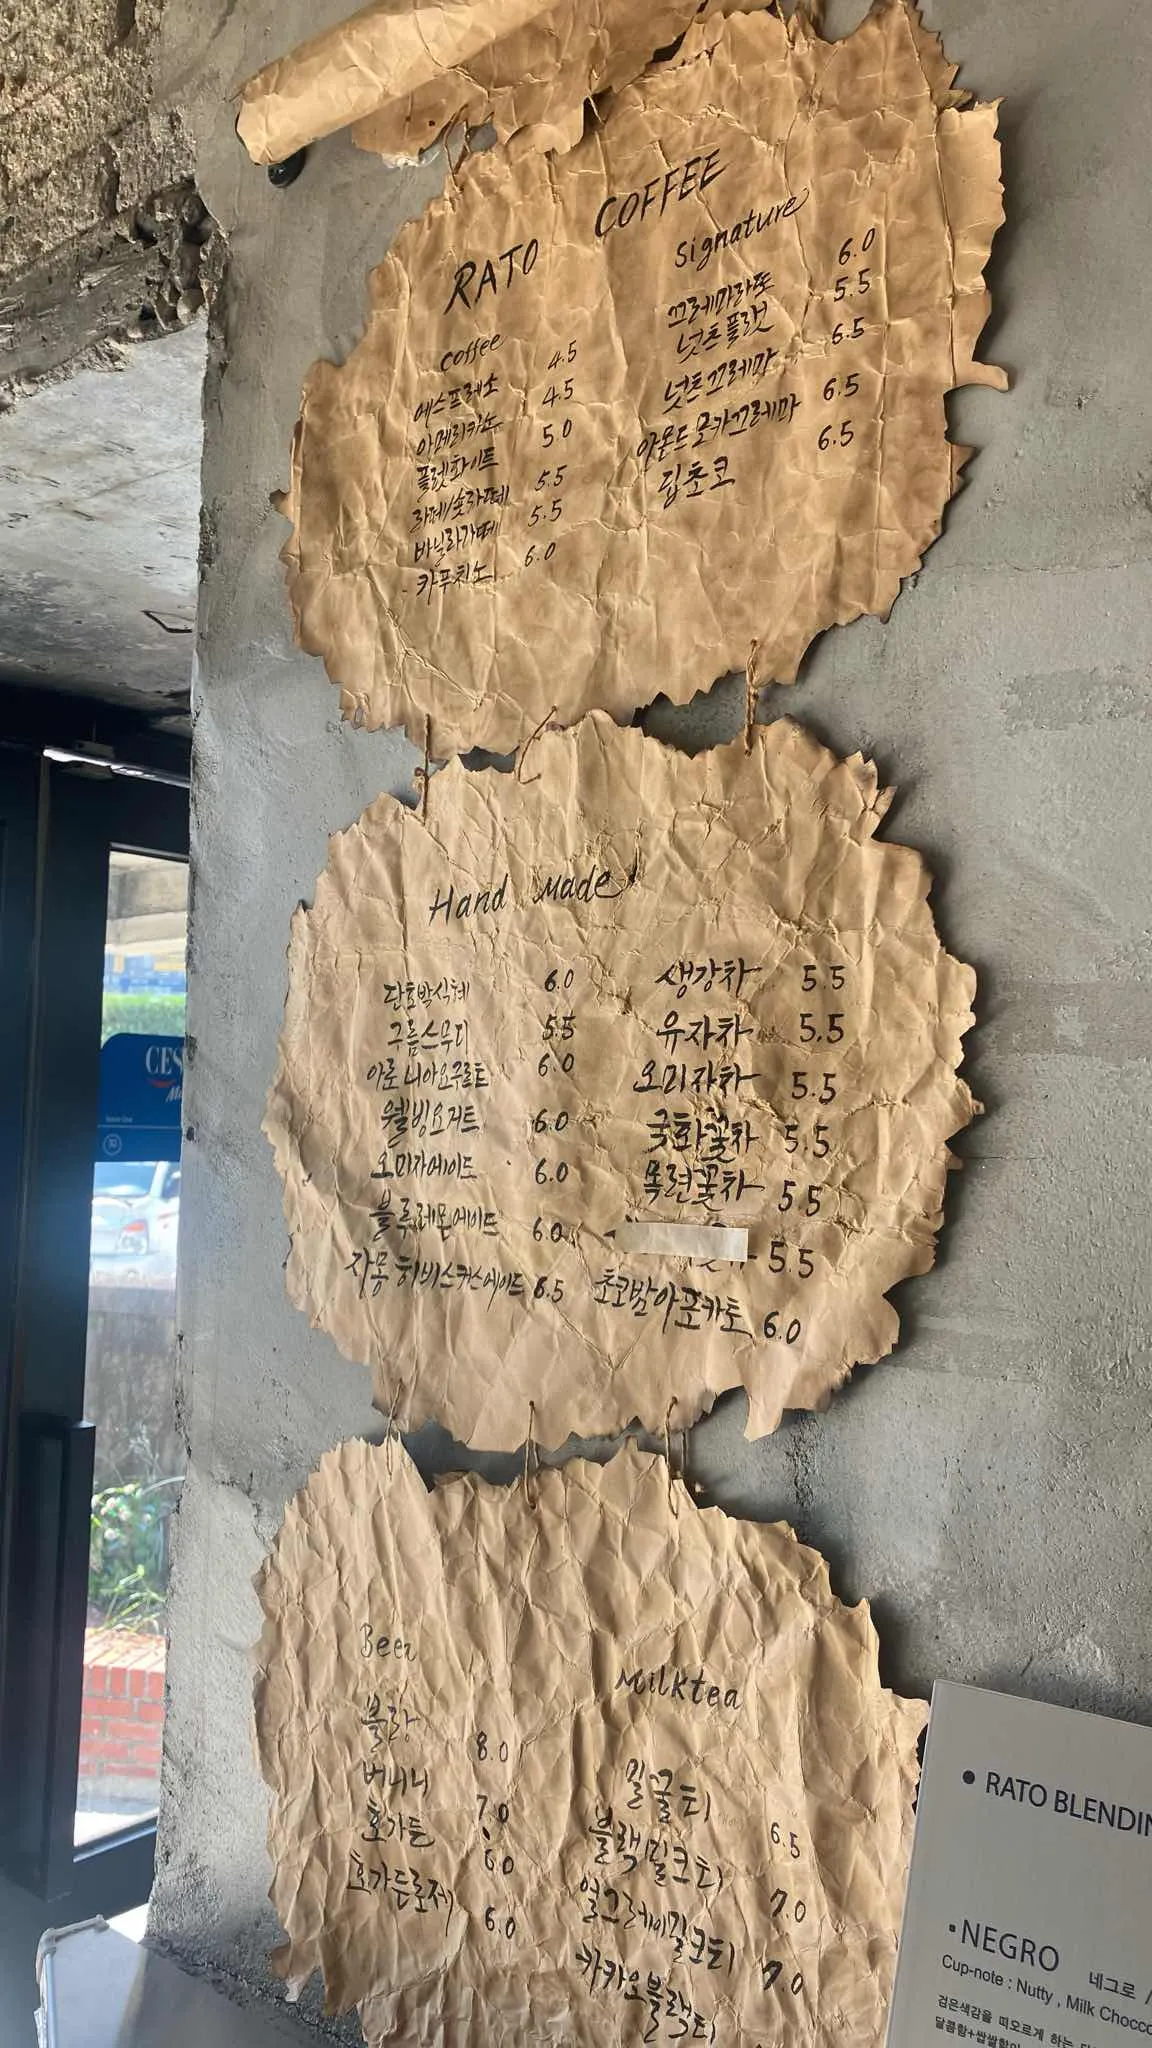 RATO COFFEE
coffee
에스프레소 4.5
아메리카노 4.5
플랫화이트 5.0
라떼/숏라떼 5.5
바닐라라떼 5.5
카푸치노 6.0
Signature
끄레마라또 6.0
넛츠플랫 5.5
넛츠끄레마 6.5
아몬드모카끄레마 6.5
딥초코 6.5
Hand Made
단호박식혜 6.0
구름스무디 5.5
아로니아요구르트 6.0
웰빙요거트 6.0
오미자에이드 6.0
블루레몬에이드 6.0
자몽히비스커스에이드 6.5
생강차 5.5
유자차 5.5
오미자차 5.5
국화꽃차 5.5
목련꽃차 5.5
5.5
초코밤아포카토 6.0
Beer
블랑 8.0
버니니 7.0
호가든 6.0
호가든로제 6.0
Milktea
밀꿀티 6.5
블랙밀크티 7.0
얼그레이밀크티 7.0
카카오블랙티
CES
• RATO BLENDIN
• NEGRO 네그로 /
Cup-note : Nutty , Milk Chocco
검은색감을 떠오르게 하는
달콤함+쌉쌀함의